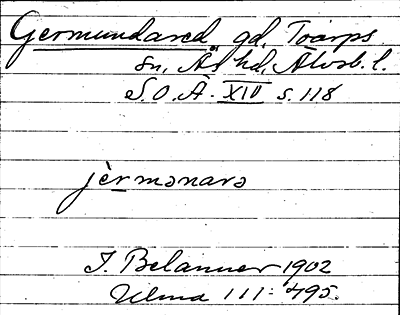 Germundared gd, Toarps
sn, Ås hd, Älvsb. l.
S.O.Ä. XIV s. 118
jèrmənarə
I. Belanner 1902
Ulma 111: 495.